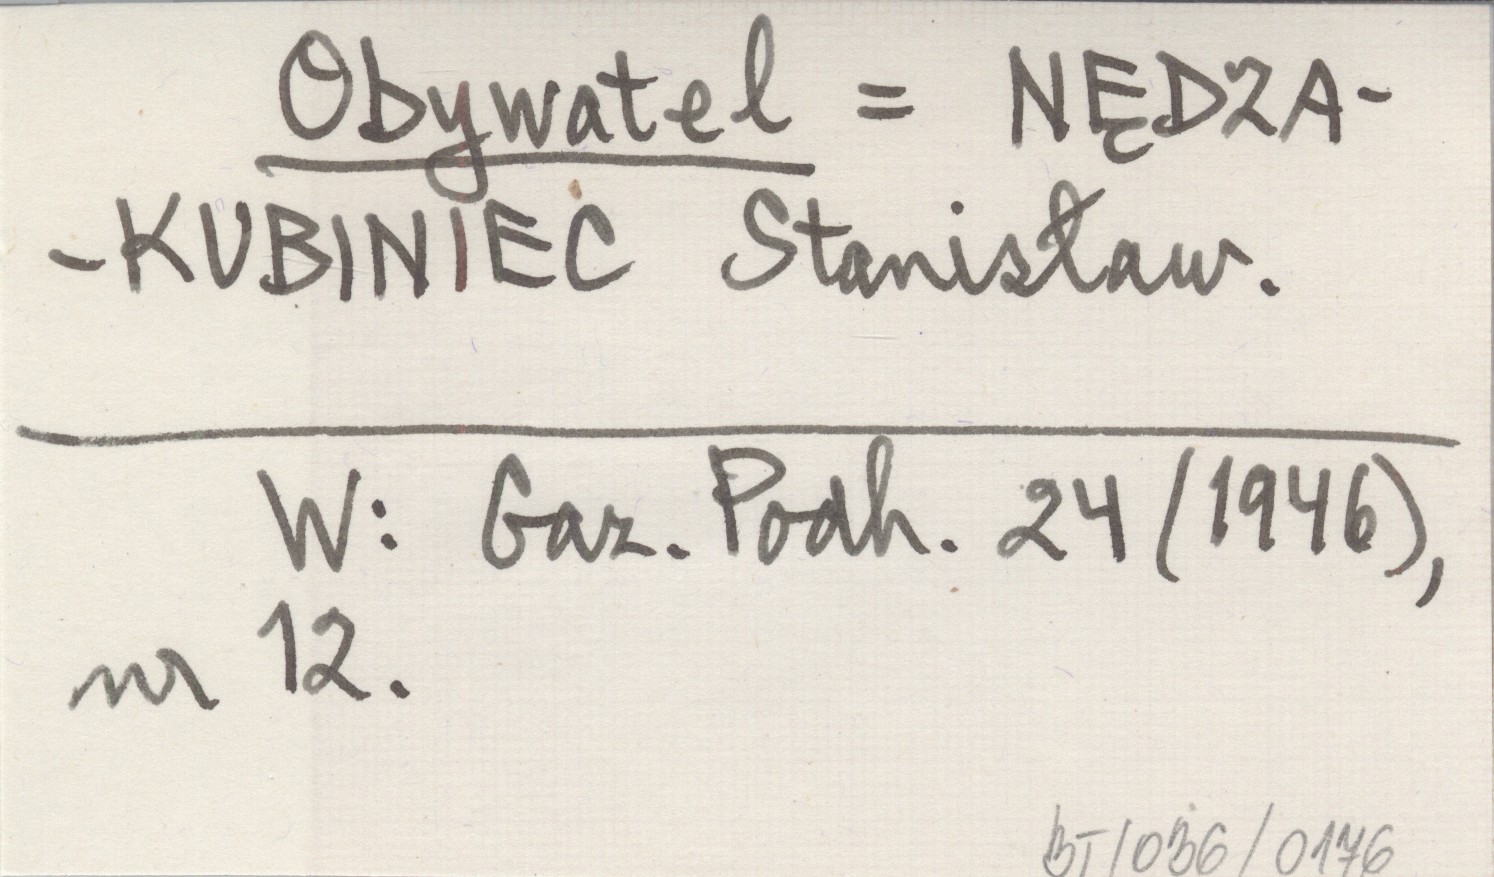 Obywatel = NĘDZA-
-KUBINIEC Stanisław.
W: Gaz. Podh. 24 (1946),
nr 12.
BT/036/0176